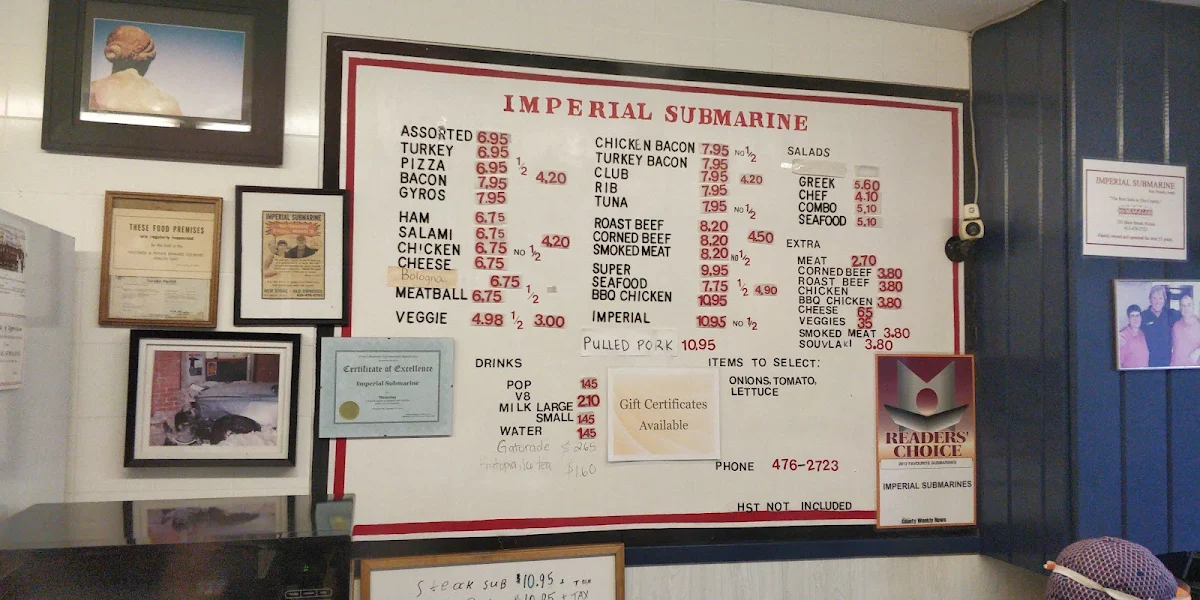 IMPERIAL SUBMARINE
ASSORTED 6.95
TURKEY 6.95
PIZZA 6.95 1/2 4.20
BACON 7.95
GYROS 7.95
HAM 6.75
SALAMI 6.75
CHICKEN 6.75 NO 1/2 4.20
CHEESE 6.75
Bologna 6.75
MEATBALL 6.75 1/2
VEGGIE 4.98 1/2 3.00
CHICKEN BACON 7.95 NO 1/2
TURKEY BACON 7.95
CLUB 7.95 4.20
RIB 7.95
TUNA 7.95 NO 1/2
ROAST BEEF 8.20
CORNED BEEF 8.20 4.50
SMOKED MEAT 8.20 NO 1/2
SUPER 9.95
SEAFOOD 7.75 1/2 4.90
BBQ CHICKEN 10.95
IMPERIAL 10.95 NO 1/2
PULLED PORK 10.95
SALADS
GREEK 5.60
CHEF 4.10
COMBO 5.10
SEAFOOD 5.10
EXTRA
MEAT 2.70
CORNED BEEF 3.80
ROAST BEEF 3.80
CHICKEN
BBQ CHICKEN 3.80
CHEESE 65
VEGGIES 35
SMOKED MEAT 3.80
SOUVLAKI 3.80
DRINKS
POP 1.45
V8
MILK LARGE 2.10
SMALL 1.45
WATER 1.45
Gatorade $2.65
$1.60
Gift Certificates
Available
ITEMS TO SELECT:
ONIONS, TOMATO,
LETTUCE
PHONE 476-2723
HST NOT INCLUDED
READERS'
CHOICE
2012 FAVOURITE SUBMARINES
IMPERIAL SUBMARINES
County Weekly News
THESE FOOD PREMISES
IMPERIAL SUBMARINE
Certificate of Excellence
Imperial Submarine
IMPERIAL SUBMARINE
Steak SUB $10.95 + TAX
$10.95 + TAX